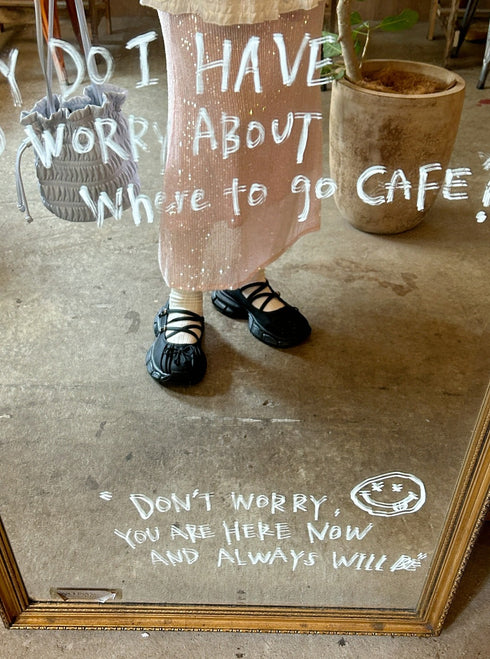 Y DO I HAVE
O WORRY ABOUT
Where to go CAFE?"
"DON'T WORRY,
YOU ARE HERE NOW
AND ALWAYS WILL BE"